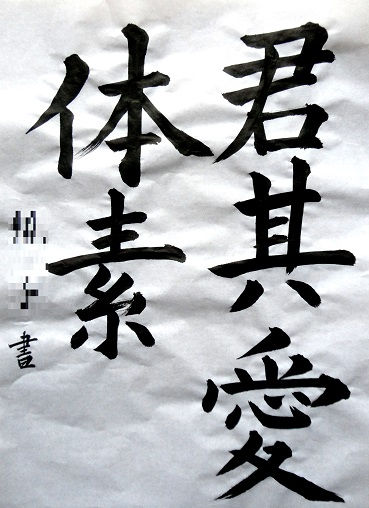 君其愛
体素
書